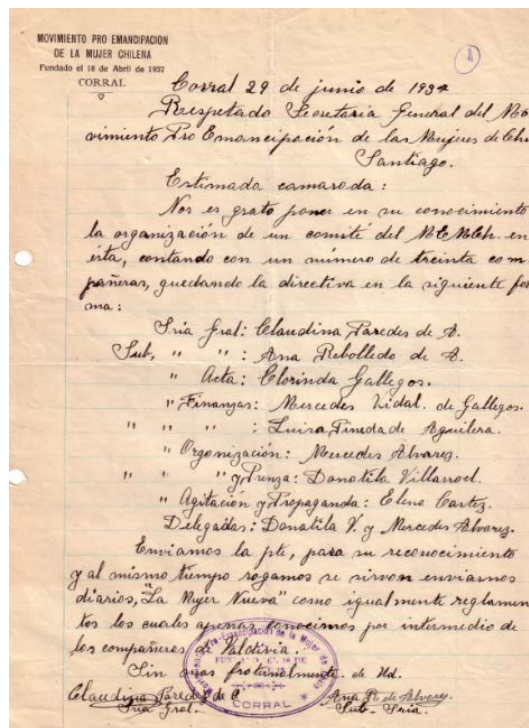 MOVIMIENTO PRO EMANCIPACION
DE LA MUJER CHILENA
Fundado el 18 de Abril de 1937
CORRAL
Corral 29 de junio de 1937
Respetado Secretaria General del Mo
vimiento Pro Emancipación de las Mujeres de Chi
Santiago.
Estimada camarada:
Nos es grato poner en su conocimiento
la organización de un comité del en
ésta, contando con un número de treinta com
pañeras, quedando la directiva en la siguiente for
ma:
Sria Gral: Claudina Paredes de
Sub, " " : Ana Rebolledo de
" Acta: Clorinda Gallegos.
" Finanzas: Mercedes Vidal de Gallegos.
" " " : Luisa Pineda de Aguilera.
" Organización: Mercedes Alvarez.
" " " y Prensa: Donatila Villarroel.
" Agitación y Propaganda: Elena Cartez.
Delegadas: Donatila V. y Mercedes Alvarez.
Enviamos la pte, para su reconocimiento
y al mismo tiempo rogamos se sirvan enviarnos
diarios, "La Mujer Nueva" como igualmente reglamen
tos los cuales apenas conocimos por intermedio de
los compañeros de Valdivia.
Sin mas fraternalmente de Ud.
Claudina Paredes de
Sria Gral.
Ana R. de
Sub-Sria.
Pro-Emancipación de la Mujer de
CORRAL